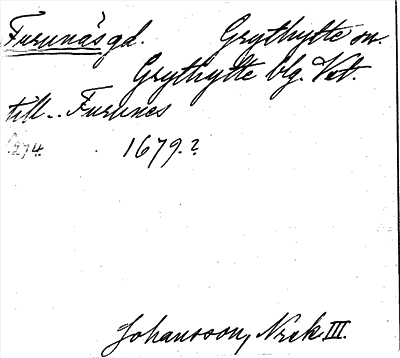 Furunäs gd. Grythytte sn.
Grythytte blg. Vstm.
till.. Furunes
274. 1679.?
Johansson, Nrck III.